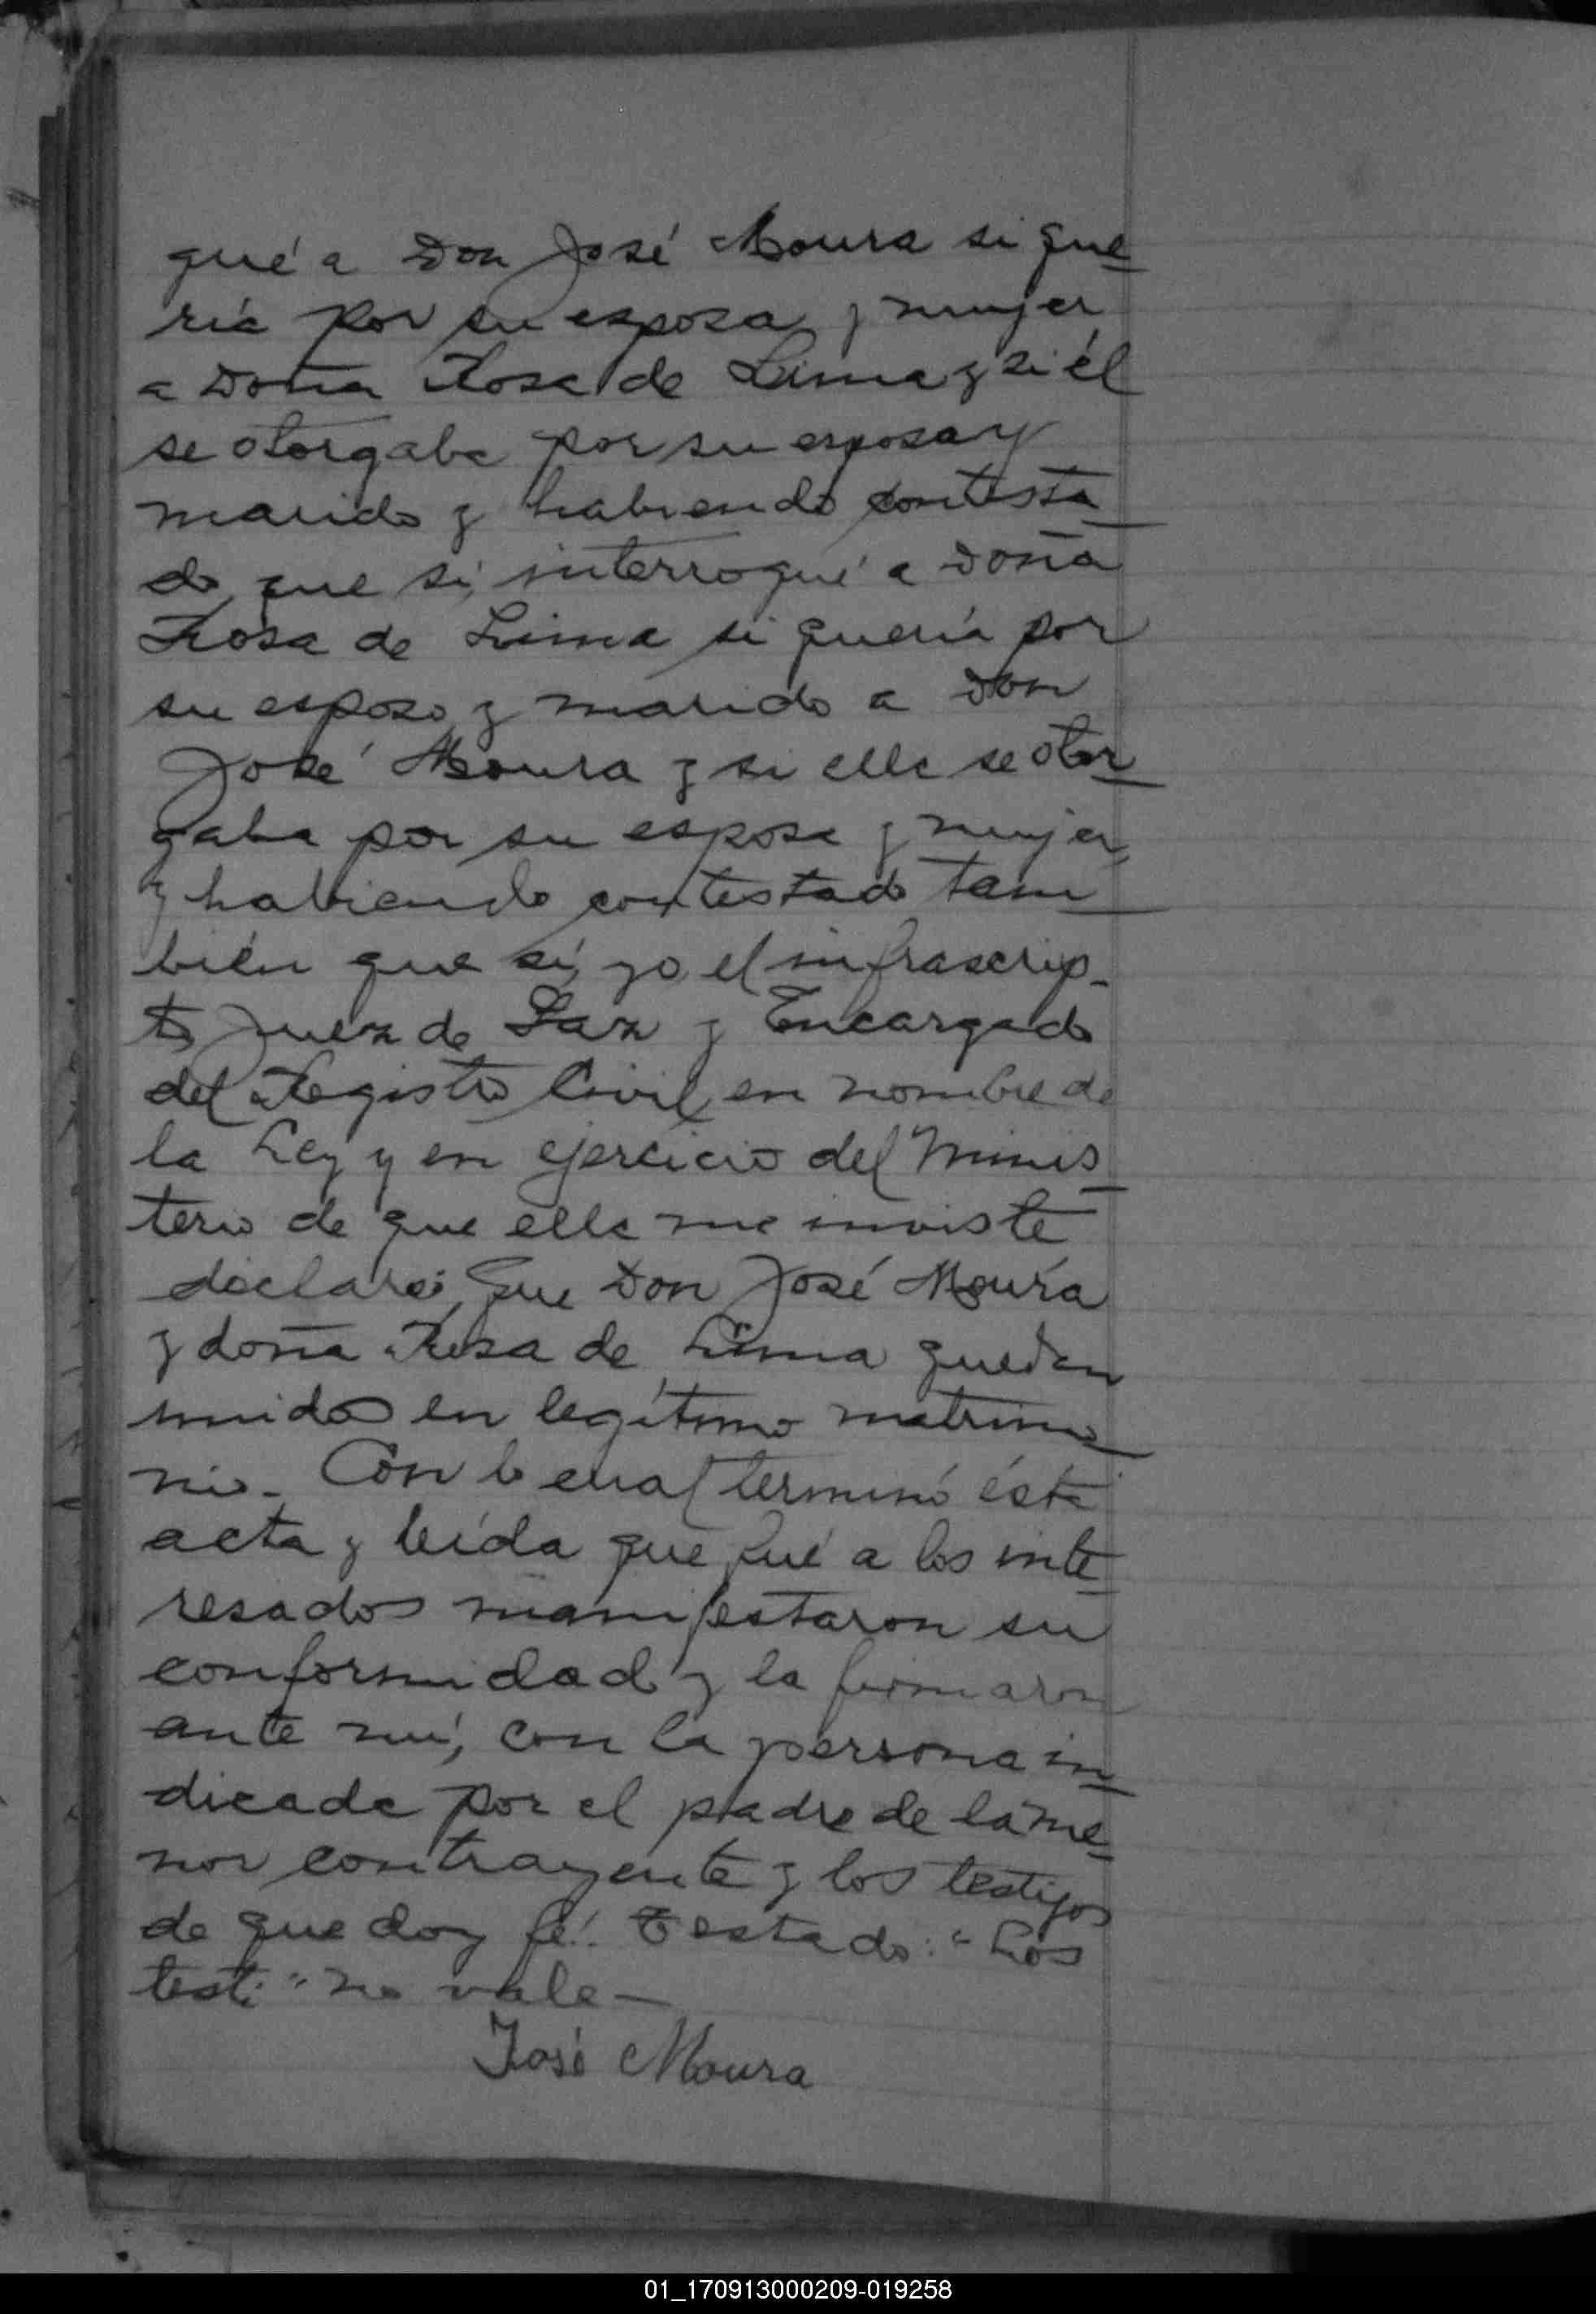 qué a Don José Moura si que
ria por su esposa y mujer
a Doña Rosa de Lima y si él
se otorgaba por su esposo y
marido y habiendo contesta
do que sí, interrogué a Doña
Rosa de Lima si quería por
su esposo y marido a Don
José Moura y si ella se otor
gaba por su esposa y mujer,
y habiendo contestado tam
bién que sí, yo, el infrascrip-
to Juez de Paz y Encargado
del Registro Civil, en nombre de
la Ley y en ejercicio del Minis
terio de que ella me inviste
declaré, Que Don José Moura
y doña Rosa de Lima quedan
unidos en legítimo matrimo
nio. Con lo cual terminó ésta
acta y leída que fué a los inte
resados manifestaron su
conformidad y la firmaron
ante mí, con la persona in
dicada por el padre de la me
nor contrayente y los testigos
de que doy fé. Testado: "Los
testi" no vale—
José Moura
01_170913000209-019258